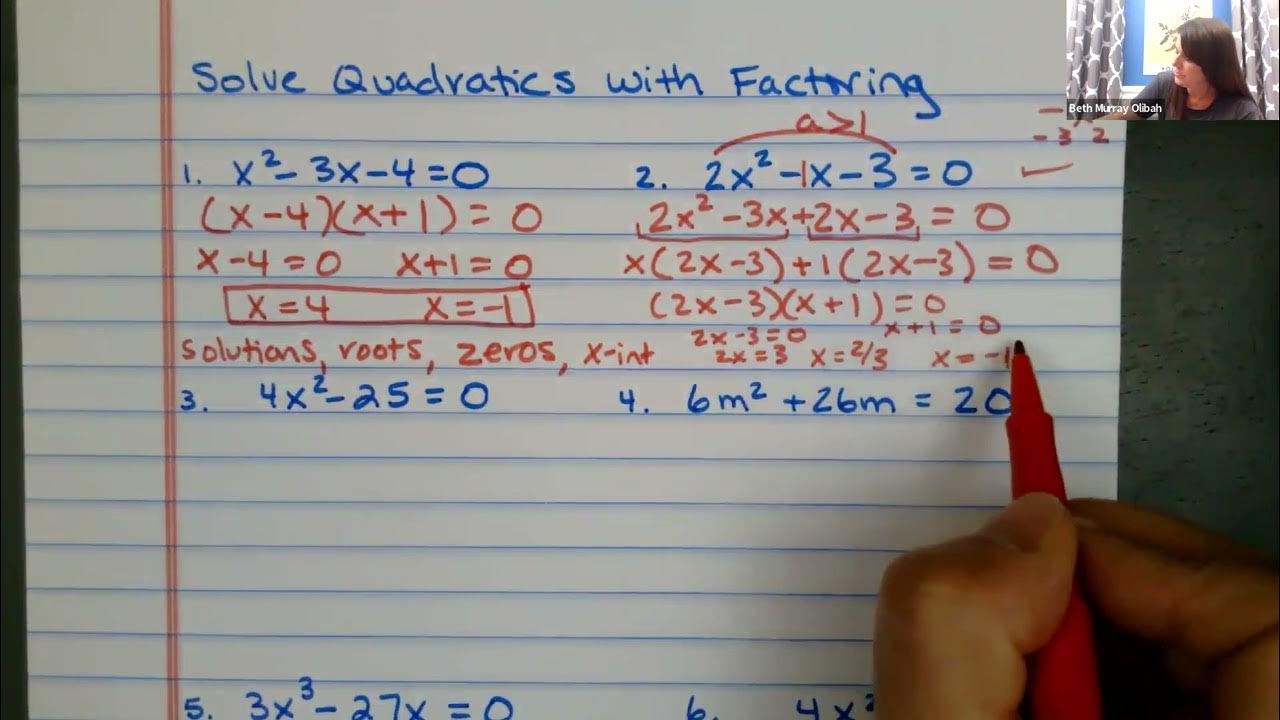 Beth Murray Olibah
Solve Quadratics with Factoring
a>1
-3 2
1. x² - 3x - 4 = 0
2. 2x² - 1x - 3 = 0 ✓
(x - 4)(x + 1) = 0
2x² - 3x + 2x - 3 = 0
x - 4 = 0 x + 1 = 0
x(2x - 3) + 1(2x - 3) = 0
x = 4 x = -1
(2x - 3)(x + 1) = 0
2x - 3 = 0 x + 1 = 0
solutions, roots, zeros, x-int
2x = 3 x = 2/3 x = -1
3. 4x² - 25 = 0
4. 6m² + 26m = 20
5. 3x³ - 27x = 0
6. 4x²